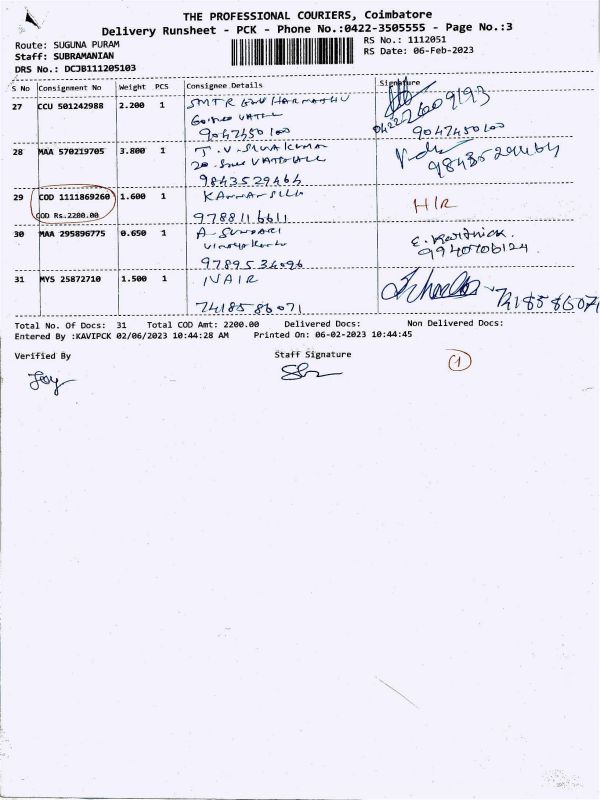 THE PROFESSIONAL COURIERS, Coimbatore
Delivery Runsheet - PCK - Phone No.:0422-3505555 - Page No.:3
Route: SUGUNA PURAM
RS No.: 1112051
Staff: SUBRAMANIAN
RS Date: 06-Feb-2023
DRS No.: DCJB111205103
S No Consignment No Weight PCS Consignee Details Signature
27 CCU 501242988 2.200 1
9047450100 9047450100
28 MAA 570219705 3.800 1 T.V. SIVAKUMAR
9843529464 9843529464
29 COD 1111869260 1.600 1
H/R
COD Rs.2200.00 9788116611
30 MAA 295896775 0.650 1 A- SUNDARI E. Karthick.
9940706124
9789534096
31 MYS 25872710 1.500 1 NAIR
7418586071 7418586071
Total No. Of Docs: 31 Total COD Amt: 2200.00 Delivered Docs: Non Delivered Docs:
Entered By :KAVIPCK 02/06/2023 10:44:28 AM Printed On: 06-02-2023 10:44:45
Verified By Staff Signature 1
Joy